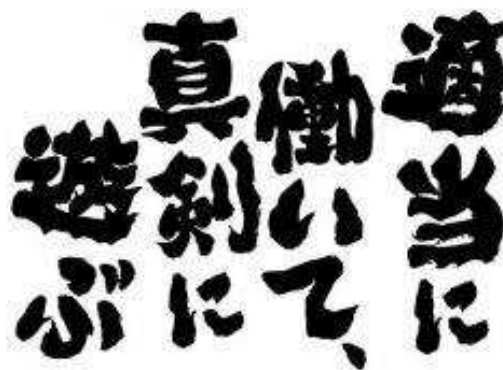 適当に
働いて、
真剣に
遊ぶ